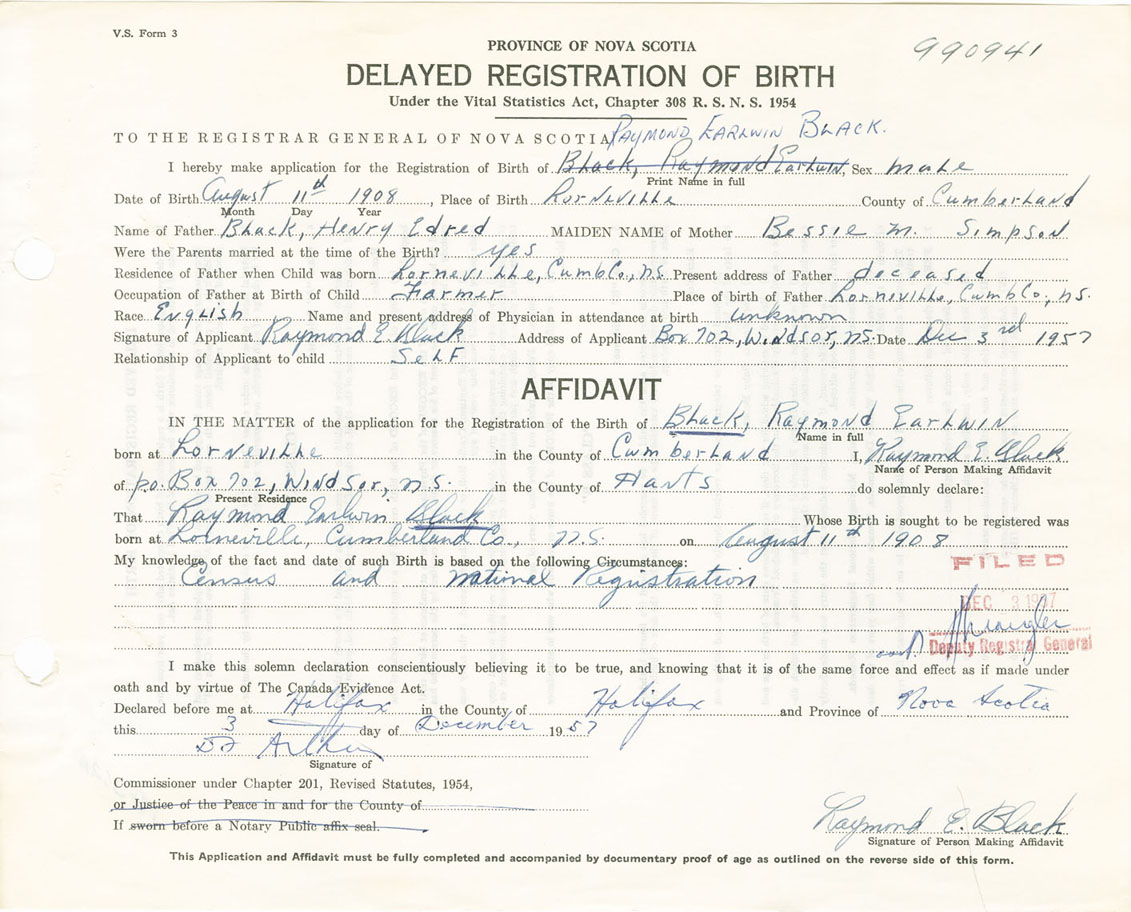 V.S. Form 3
990941
PROVINCE OF NOVA SCOTIA
DELAYED REGISTRATION OF BIRTH
Under the Vital Statistics Act, Chapter 308 R. S. N. S. 1954
TO THE REGISTRAR GENERAL OF NOVA SCOTIA RAYMOND EARLWIN BLACK.
I hereby make application for the Registration of Birth of Black, Raymond Earlwin, Sex male
Print Name in full
Date of Birth August 11th 1908, Place of Birth Lorneville County of Cumberland
Month Day Year
Name of Father Black, Henry Edred MAIDEN NAME of Mother Bessie M. Simpson
Were the Parents married at the time of the Birth? yes
Residence of Father when Child was born Lorneville, Cumb Co., NS Present address of Father deceased
Occupation of Father at Birth of Child Farmer Place of birth of Father Lorneville, Cumb Co., NS.
Race English Name and present address of Physician in attendance at birth unknown
Signature of Applicant Raymond E. Black Address of Applicant Box 702, Windsor, NS. Date Dec 3rd 1957
Relationship of Applicant to child SELF
AFFIDAVIT
IN THE MATTER of the application for the Registration of the Birth of Black, Raymond Earlwin
Name in full
born at Lorneville in the County of Cumberland I, Raymond E. Black
Name of Person Making Affidavit
of P.O. Box 702, Windsor, N.S. in the County of Hants do solemnly declare:
Present Residence
That Raymond Earlwin Black Whose Birth is sought to be registered was
born at Lorneville, Cumberland Co., N.S. on August 11th 1908
My knowledge of the fact and date of such Birth is based on the following Circumstances:
Census and national Registration
FILED
DEC 3 1957
Deputy Registrar General
I make this solemn declaration conscientiously believing it to be true, and knowing that it is of the same force and effect as if made under
oath and by virtue of The Canada Evidence Act.
Declared before me at Halifax in the County of Halifax and Province of Nova Scotia
this 3 day of December 1957
Signature of
Commissioner under Chapter 201, Revised Statutes, 1954,
or Justice of the Peace in and for the County of
If sworn before a Notary Public affix seal.
Raymond E. Black
Signature of Person Making Affidavit
This Application and Affidavit must be fully completed and accompanied by documentary proof of age as outlined on the reverse side of this form.